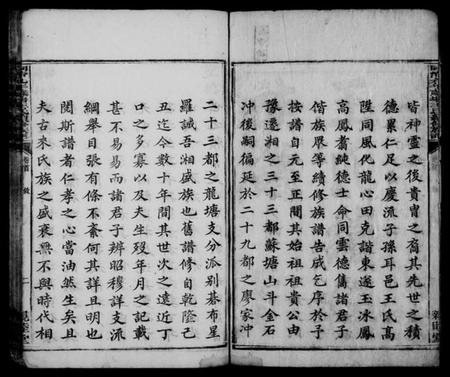 皆神靈之後貴冑之裔其先世之積
德累仁足以慶流子孫耳邑王氏高
陞同風化龍心田克諧東遂玉冰鳳
高鳳翥純德士俞同雲德儁諸君子
偕族厚等續修族譜告成乞序於予
按譜自元至正間其始祖祖貴公由
豫遷湘之三十三都蘇塘山斗金石
冲後嗣徧延於二十九都之廖家冲
二十三都之龍塘支分派别碁布星
羅誠吾湘盛族也舊譜修自乾隆己
丑迄今數十年間其世次之遠近丁
口之多寡以及夫生歿年月之記載
甚不易易而諸君子辨昭穆詳支流
綱舉目張有條不紊何其詳且明也
閱斯譜者仁孝之心當油然生矣且
夫古來氏族之盛衰無不與時代相